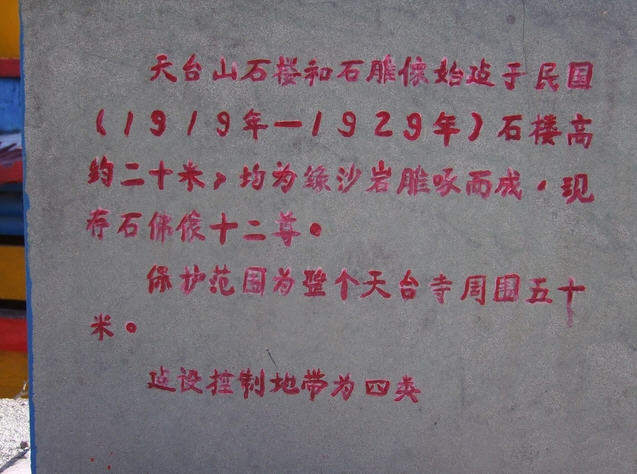 天台山石楼和石雕像始建于民国
(1919年—1929年)石楼高
约二十米,均为绿沙岩雕啄而成,现
存石佛像十二尊。
保护范围为整个天台寺周围五十
米。
建设控制地带为四类